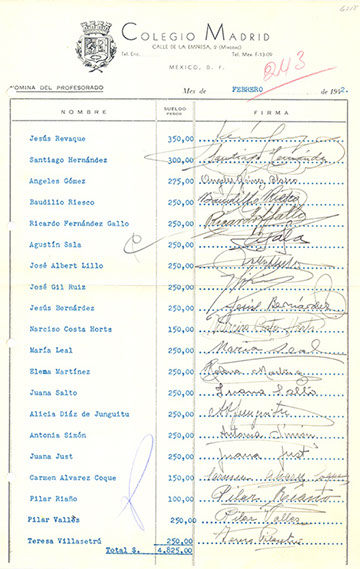 COLEGIO MADRID
CALLE DE LA EMPRESA, 2 (Mixcoac)
Tel. Eric. Tel. Mex F-13-09
MEXICO, D. F.
243
NOMINA DEL PROFESORADO Mes de FEBRERO de 1942.
NOMBRE SUELDO PESOS FIRMA
Jesús Revaque 350,00
Santiago Hernández 300,00 Santiago Hernández
Angeles Gómez 275,00 Angeles Gómez Blasco
Baudilio Riesco 250,00 Baudilio Riesco
Ricardo Fernández Gallo 250,00 Ricardo F Gallo
Agustín Sala 250,00 Sala
José Albert Lillo 250,00
José Gil Ruiz 250,00
Jesús Bernárdez 250,00 Jesús Bernárdez
Narciso Costa Horts 150,00 Narciso Costa Horts
María Leal 250,00 María Leal
Elema Martínez 250,00
Juana Salto 250,00 Juana Salto
Alicia Díaz de Junguitu 250,00
Antonia Simón 250,00 Antonia Simón
Juana Just 250,00 Juana Just
Carmen Alvarez Coque 150,00 Carmen Alvarez Coque
Pilar Riaño 100,00 Pilar Riaño
Pilar Vallés 250,00 Pilar Valles
Teresa Villasetrú 250,00
Total $ 4.825,00